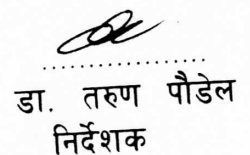 ....................
डा. तरुण पौडेल
निर्देशक